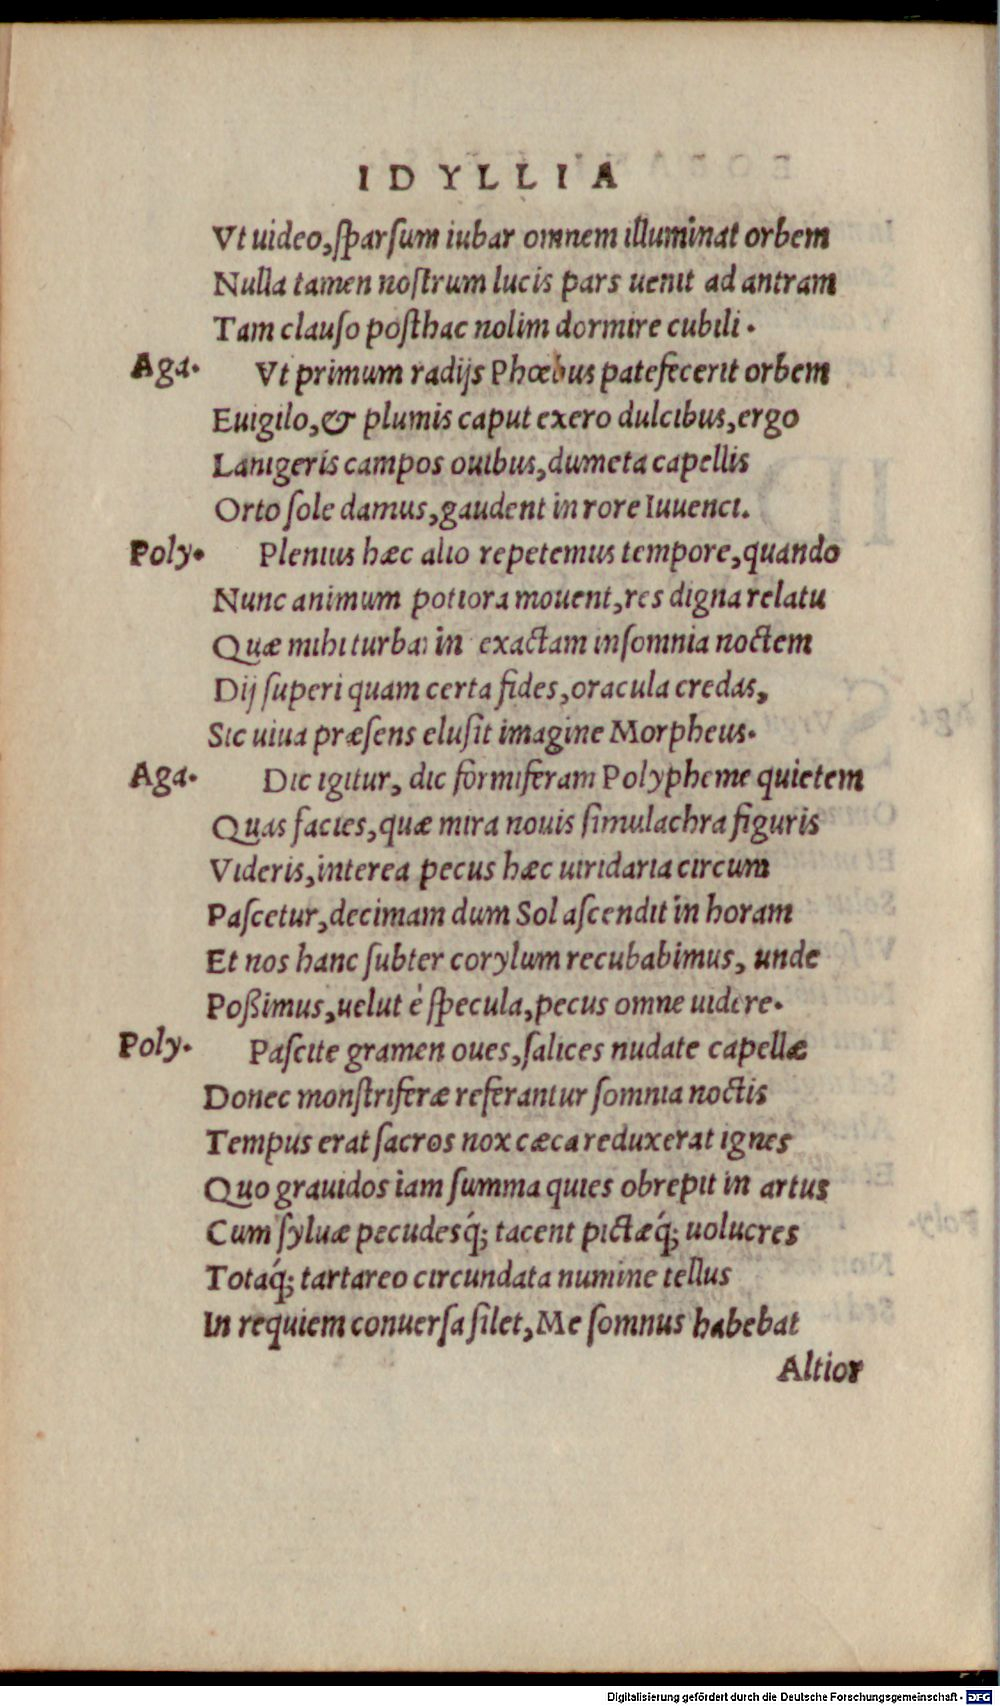 IDYLLIA
Vt uideo, sparsum iubar omnem illuminat orbem
Nulla tamen nostrum lucis pars uenit ad antram
Tam clauso posthac nolim dormire cubili.
Aga. Vt primum radijs Phœbus patefecerit orbem
Euigilo, & plumis caput exero dulcibus, ergo
Lanigeris campos ouibus, dumeta capellis
Orto sole damus, gaudent in rore Iuuenci.
Poly. Plenius hæc alio repetemus tempore, quando
Nunc animum potiora mouent, res digna relatu
Quæ mihi turbat in exactam insomnia noctem
Dij superi quam certa fides, oracula credas,
Sic uiua præsens elusit imagine Morpheus.
Aga. Dic igitur, dic formiferam Polypheme quietem
Quas facies, quæ mira nouis simulachra figuris
Videris, interea pecus hæc uiridaria circum
Pascetur, decimam dum Sol ascendit in horam
Et nos hanc subter corylum recubabimus, unde
Poßimus, uelut è specula, pecus omne uidere.
Poly. Pascite gramen oues, salices nudate capellæ
Donec monstriferæ referantur somnia noctis
Tempus erat sacros nox cæca reduxerat ignes
Quo grauidos iam summa quies obrepit in artus
Cum syluæ pecudesq́; tacent pictæq́; uolucres
Totaq́; tartareo circundata numine tellus
In requiem conuersa silet, Me somnus habebat
Altior
Digitalisierung gefördert durch die Deutsche Forschungsgemeinschaft - DFG